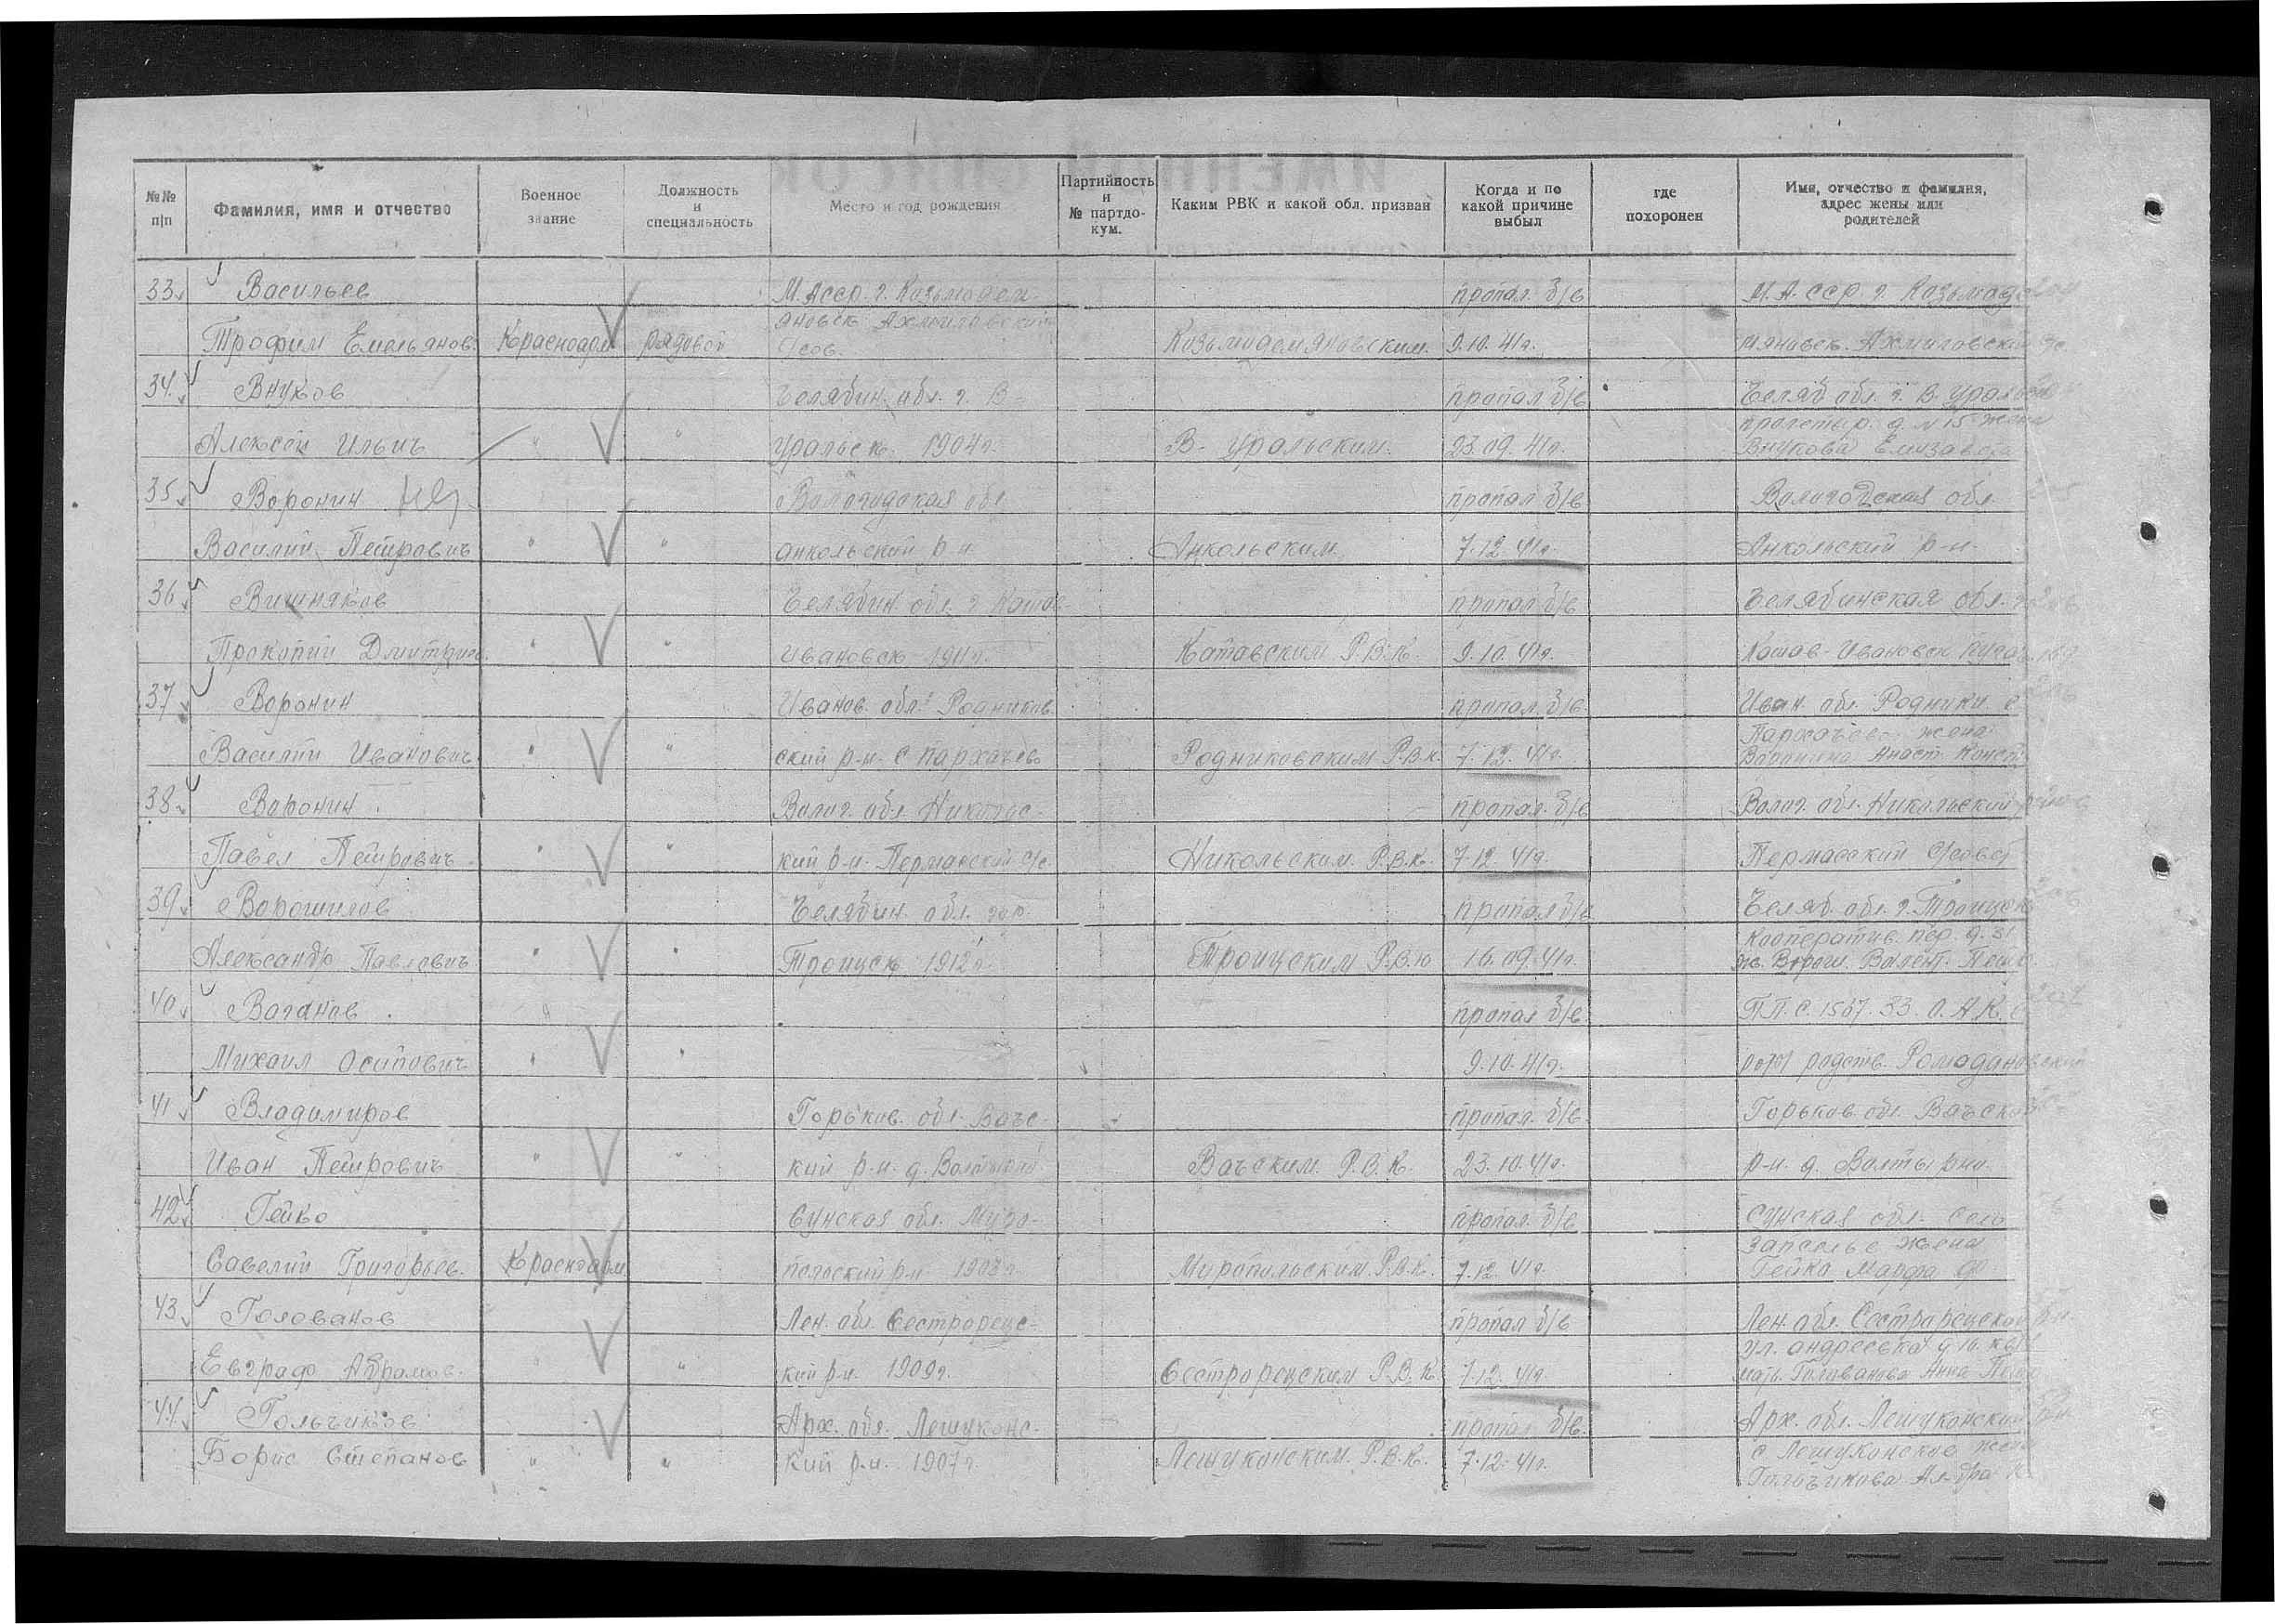 №№ п|п
Фамилия, имя и отчество
Военное звание
Должность и специальность
Место и год рождения
Партийность и № партдокум.
Каким РВК и какой обл. призван
Когда и по какой причине выбыл
где похоронен
Имя, отчество и фамилия, адрес жены или родителей
33 Васильев М.Асср. г. Козьмодем- пропал б/в М.А.сср г. Козьмоде
Трофим Емельянов. Красноарм рядовой яновск Ахмыловский с/сов. Козьмодемяновским. 9.10.41г. мяновск. Ахмыловский
34. Внуков Челябин. обл. г. В- пропал б/в Челяб обл. г. В. Уральск
Алексей Ильич " " Уральск. 1904г. В-Уральским. 23.09.41г. пролетар. д. N 15 жена
Внукова Елизавета
35 Воронин Вологодская обл пропал б/в Вологодская обл
Василий Петрович " " анкольский р-н Анкольским 7.12.41г. Анкольский р-н.
36 Вишняков Челябин. обл. г. Катав- пропал б/в Челябинская обл.
Прокопий Дмитриев. " " Ивановск 1911г. Катавским Р.В.К. 9.10.41г. Катав-Ивановск
37 Воронин Иванов. обл. Родников. пропал б/в. Иван. обл. Родники с
Василий Иванович. " " ский р-н. с Пархачево Родниковским Р.В.К. 7.12.41г. Пархачево жена
Воронина Анаст. Конст.
38 Воронин. Волог. обл. Никольс- пропал. б/в Волог. обл. Никольский р
Павел Петрович. " " кий р-н. Пермасский с/с Никольским. Р.В.К. 7.12.41г. Пермасский с/совет
39 Ворошилов Челябин. обл. гор. пропал б/в Челяб. обл. г. Троицк
Александр Павлович " " Троицк 1912г. Троицким Р.В.К 16.09.41г. Кооператив. пер. д. 31
ж. Ворош. Валент. Петр.
40 Ваганов. пропал б/в. П.П.С. 1567. 33. О.А.К.
Михаил Осипович " " 9.10.41г. родств. Ромодановский
41 Владимиров Горьков. обл. Вачс- пропал. б/в. Горьков. обл. Вачский
Иван Петрович " " кий р-н. д. Вачским. Р.В.К. 23.10.41г. р-н. д.
42 Гейко Сумская обл. Миро- пропал. б/в Сумская обл. село
Савелий Григорьев. Красноарм польский р-н 1903г. Миропольским. Р.В.К. 7.12.41г. Запселье жена
Гейко Марфа Ф
43 Голованов Лен. обл. Сестрорецс- пропал б/в Лен. обл. Сестрорецкой р-н.
Евграф Абрамов. " " кий р-н. 1909г. Сестрорецким Р.В.К. 7.12.41г ул. андреевка д 10. кв
мать. Голованова Анна
44 Гольчиков Арх. обл. Лешуконс- пропал б/в. Арх. обл. Лешуконский р-н
Борис Степанов " " кий р-н. 1907г. Лешуконским. Р.В.К. 7.12.41г. с Лешуконское жена
Гольчикова Ал-дра К